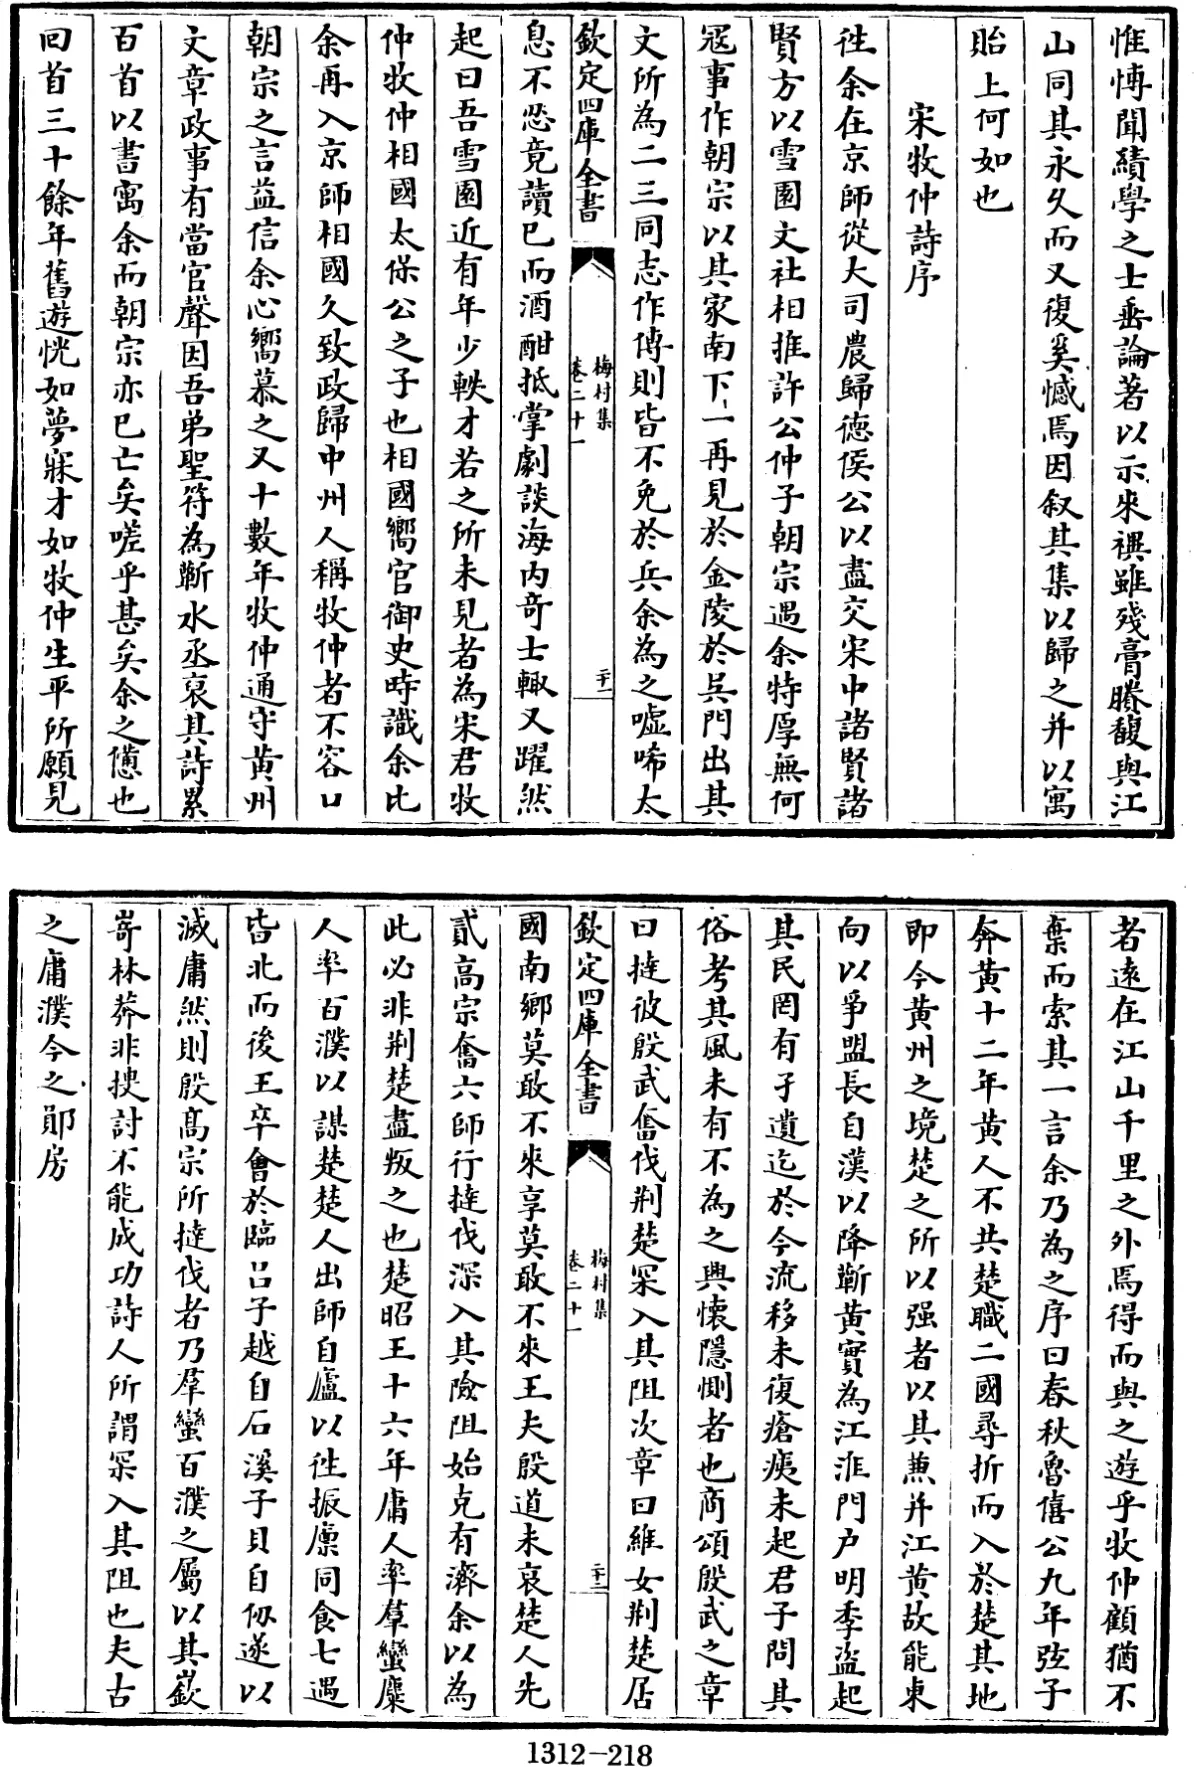 惟博聞績學之士垂論著以示來禩雖殘膏賸馥與江
山同其永久而又復奚憾焉因叙其集以歸之并以寓
貽上何如也
宋牧仲詩序
徃余在京師從大司農歸德侯公以盡交宋中諸賢諸
賢方以雪園文社相推許公仲子朝宗遇余特厚無何
冦事作朝宗以其家南下一再見於金陵於吳門出其
文所為二三同志作傳則皆不免於兵余為之嘘唏太
欽定四庫全書
梅村集
卷二十一
二十一
息不怂竟讀已而酒酣抵掌劇談海內竒士輙又躍然
起曰吾雪園近有年少軼才若之所未見者為宋君牧
仲牧仲相國太保公之子也相國嚮官御史時識余比
余再入京師相國久致政歸中州人稱牧仲者不容口
朝宗之言益信余心嚮慕之又十數年牧仲通守黄州
文章政事有當官聲因吾弟聖符為蘄水丞裒其詩累
百首以書寓余而朝宗亦已亡矣嗟乎甚矣余之憊也
回首三十餘年舊遊恍如夢寐才如牧仲生平所願見
者遠在江山千里之外焉得而與之遊乎牧仲顧猶不
棄而索其一言余乃為之序曰春秋魯僖公九年弦子
奔黄十二年黄人不共楚職二國尋折而入於楚其地
即今黄州之境楚之所以强者以其兼并江黄故能東
向以爭盟長自漢以降蘄黄實為江淮門户明季盗起
其民罔有孑遺迄於今流移未復瘡痍未起君子問其
俗考其風未有不為之興懷隱惻者也商頌殷武之章
曰撻彼殷武奮伐荆楚罙入其阻次章曰維女荆楚居
欽定四庫全書
梅村集
卷二十一
二十二
國南鄉莫敢不來享莫敢不來王夫殷道未衰楚人先
貳高宗奮六師行撻伐深入其險阻始克有濟余以為
此必非荆楚盡叛之也楚昭王十六年庸人率羣蠻麇
人率百濮以謀楚楚人出師自廬以徃振廪同食七遇
皆北而後王卒會於臨呂子越自石溪子貝自仞遂以
滅庸然則殷髙宗所撻伐者乃羣蠻百濮之屬以其嶔
嵜林莽非搜討不能成功詩人所謂罙入其阻也夫古
之庸濮今之鄖房
1312-218